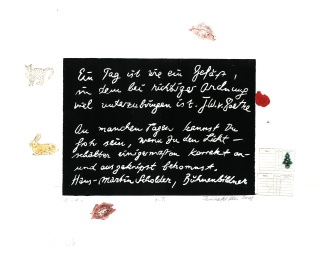 Ein Tag ist wie ein Gefäß,
in dem bei richtiger Ordnung
viel unterzubringen ist. J.W.v. Goethe
An manchen Tagen kannst Du
froh sein, wenn Du den Licht-
schalter einigermaßen korrekt an-
und ausgeknipst bekommst.
Hans-Martin Scholder, Bühnenbildner